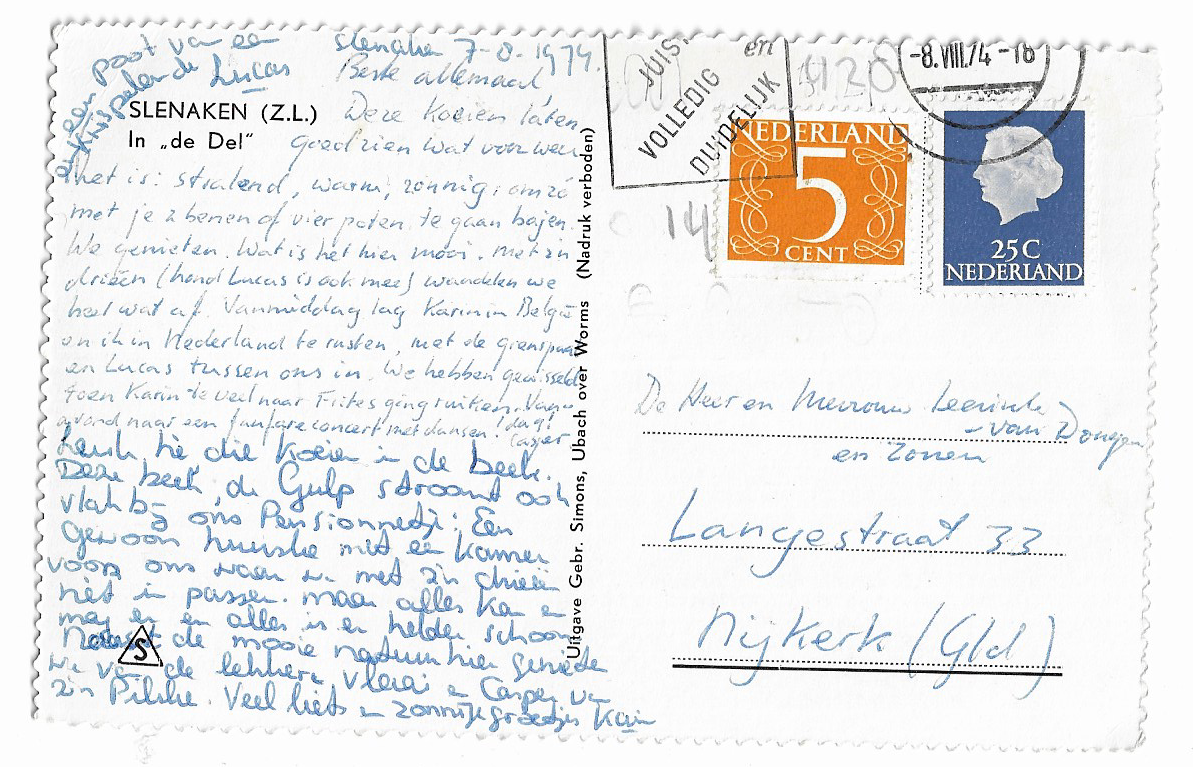 een poot van een
kwispelende Lucas
Slenaken 7-8-1974.
Beste allemaal,
SLENAKEN (Z.L.)
In „de Del"
Deze Koeien laten
goed zien wat voor weer
het is: stralend, warm, zonnig; om zó
met je 2 benen of vier poten te gaan bajen.
We genieten. Wat is het hier mooi. Met z'n
drieën (hond Lucas is ook mee) wandelen we
heel wat af. Vanmiddag lag Karin in België
en ik in Nederland te rusten, met de grenspaal
en Lucas tussen ons in. We hebben gewisseld
toen Karin te veel naar Frites ging ruiken. Van-
avond naar een fanfareconcert met dansen! dag!
Casper
Leuk hè die koeien in de beek.
Deze beek, de Gulp stroomt ook
vlak bij ons Pensionnetje. Een
gewoon huuske met een kamer
voor ons waar we met z'n drieën
nèt in passen. maar alles kan en
mag er en alles is er helder schoon
Naast de mooie natuur hier genieten
we van de lekkere vlaai en Casper van
z'n Pilske. Veel liefs en zonnige groetjes Karin
S
Uitgave Gebr. Simons, Ubach over Worms (Nadruk verboden)
JUIST
en
VOLLEDIG
DUIDELIJK
4120
-8.VIII.74 -18
NEDERLAND
5
CENT
25 C
NEDERLAND
14
De Heer en Mevrouw
- van Dongen
en Zonen
Langestraat 33
Nijkerk (Gld)